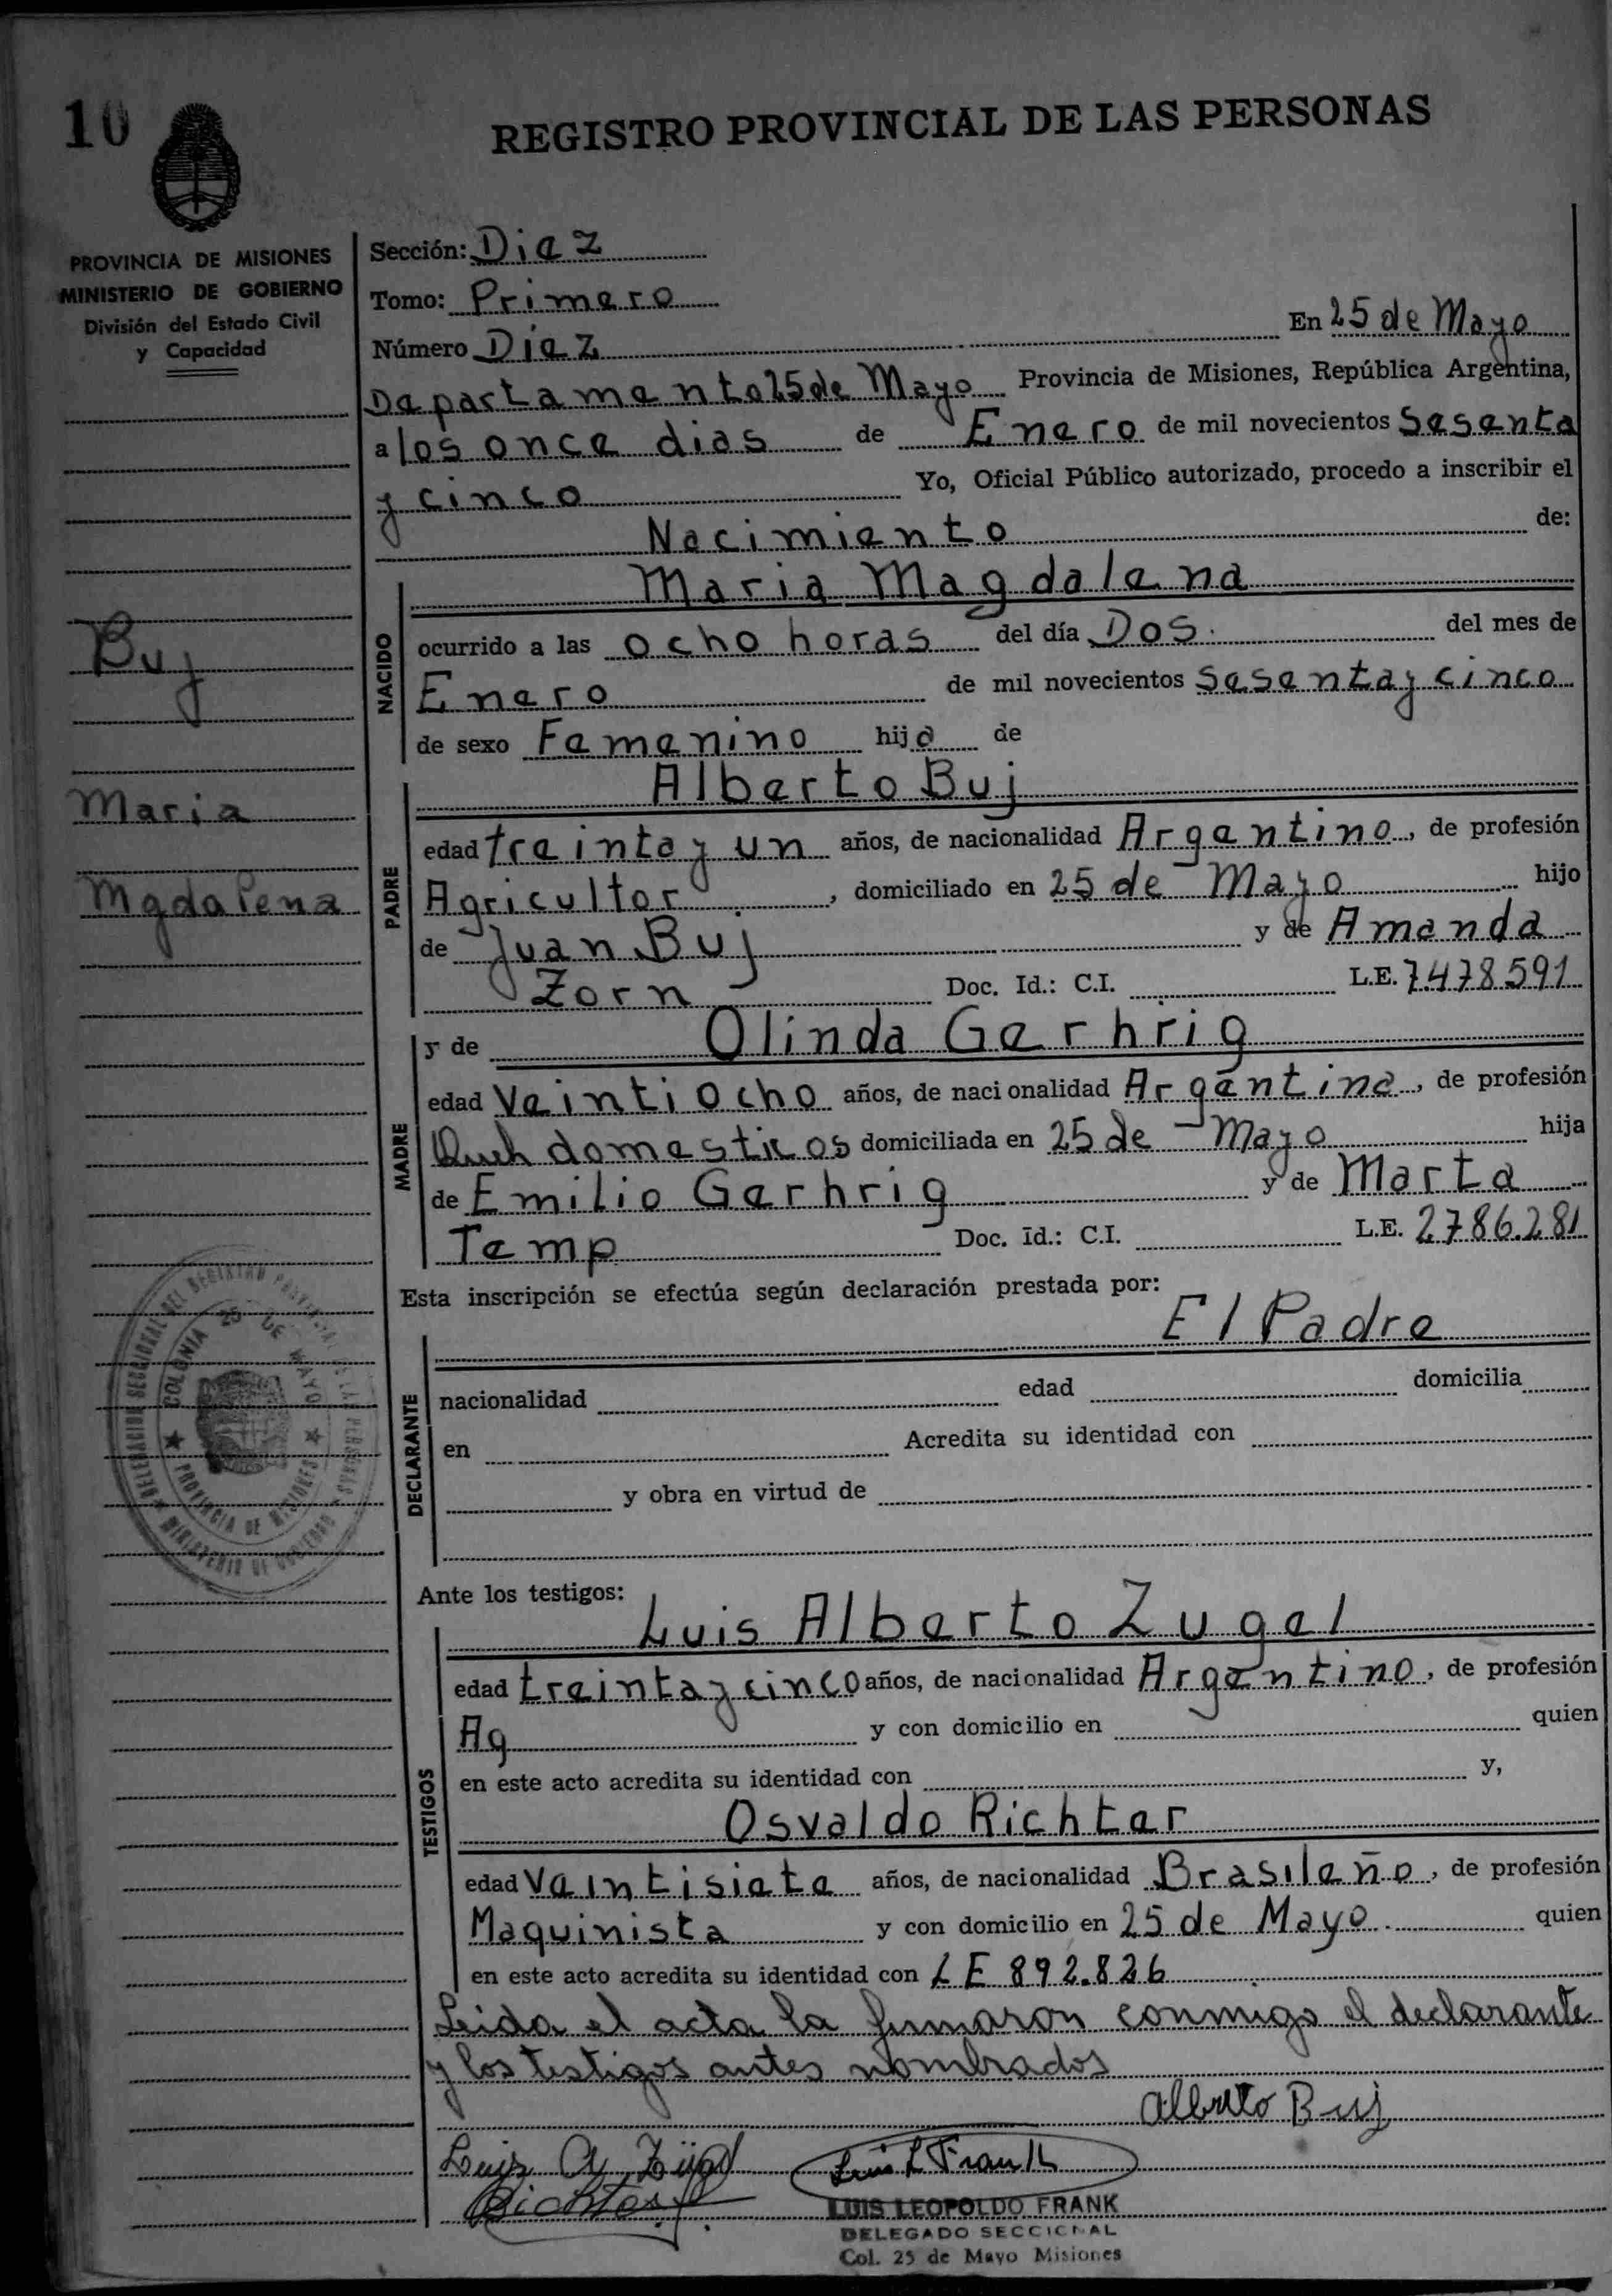 10
REGISTRO PROVINCIAL DE LAS PERSONAS
PROVINCIA DE MISIONES
MINISTERIO DE GOBIERNO
División del Estado Civil
y Capacidad
Buj
Maria
Mgdalena
Sección: Diez
Tomo: Primero
Número Diez En 25 de Mayo
Departamento 25 de Mayo Provincia de Misiones, República Argentina,
a los once dias de Enero de mil novecientos Sesenta
y cinco Yo, Oficial Público autorizado, procedo a inscribir el
Nacimiento de:
NACIDO
Maria Magdalena
ocurrido a las ocho horas del día Dos. del mes de
Enero de mil novecientos Sesenta y cinco
de sexo Femenino hija de
PADRE
Alberto Buj
edad treinta y un años, de nacionalidad Argentino, de profesión
Agricultor, domiciliado en 25 de Mayo hijo
de Juan Buj y de Amanda
Zorn Doc. Id.: C.I. L.E. 7.478.591
MADRE
y de Olinda Gerhrig
edad Veinti Ocho años, de nacionalidad Argentina, de profesión
domesticos domiciliada en 25 de Mayo hija
de Emilio Gerhrig y de Marta
Temp Doc. Id.: C.I. L.E. 2.786.281
Esta inscripción se efectúa según declaración prestada por:
El Padre
DECLARANTE
nacionalidad edad domicilia
en Acredita su identidad con
y obra en virtud de
DELEGACION SECCIONAL DEL REGISTRO PROVINCIAL DE LAS PERSONAS
COLONIA 25 DE MAYO
PROVINCIA DE MISIONES
MINISTERIO DE GOBIERNO
Ante los testigos:
TESTIGOS
Luis Alberto Zugel
edad treinta y cinco años, de nacionalidad Argentino, de profesión
Ag y con domicilio en quien
en este acto acredita su identidad con y,
Osvaldo Richter
edad Veintisiete años, de nacionalidad Brasileño, de profesión
Maquinista y con domicilio en 25 de Mayo. quien
en este acto acredita su identidad con LE 892.826
Leida el acta la firmaron conmigo el declarante
y los testigos antes nombrados
Alberto Buj
Luis A Zügel Luis L Frank
Richter
LUIS LEOPOLDO FRANK
DELEGADO SECCIONAL
Col. 25 de Mayo Misiones